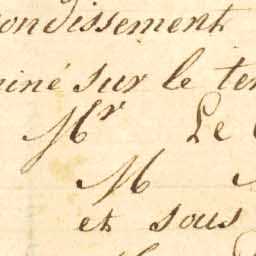 ondissement
iné sur le ter
Mr Le
M
et sous